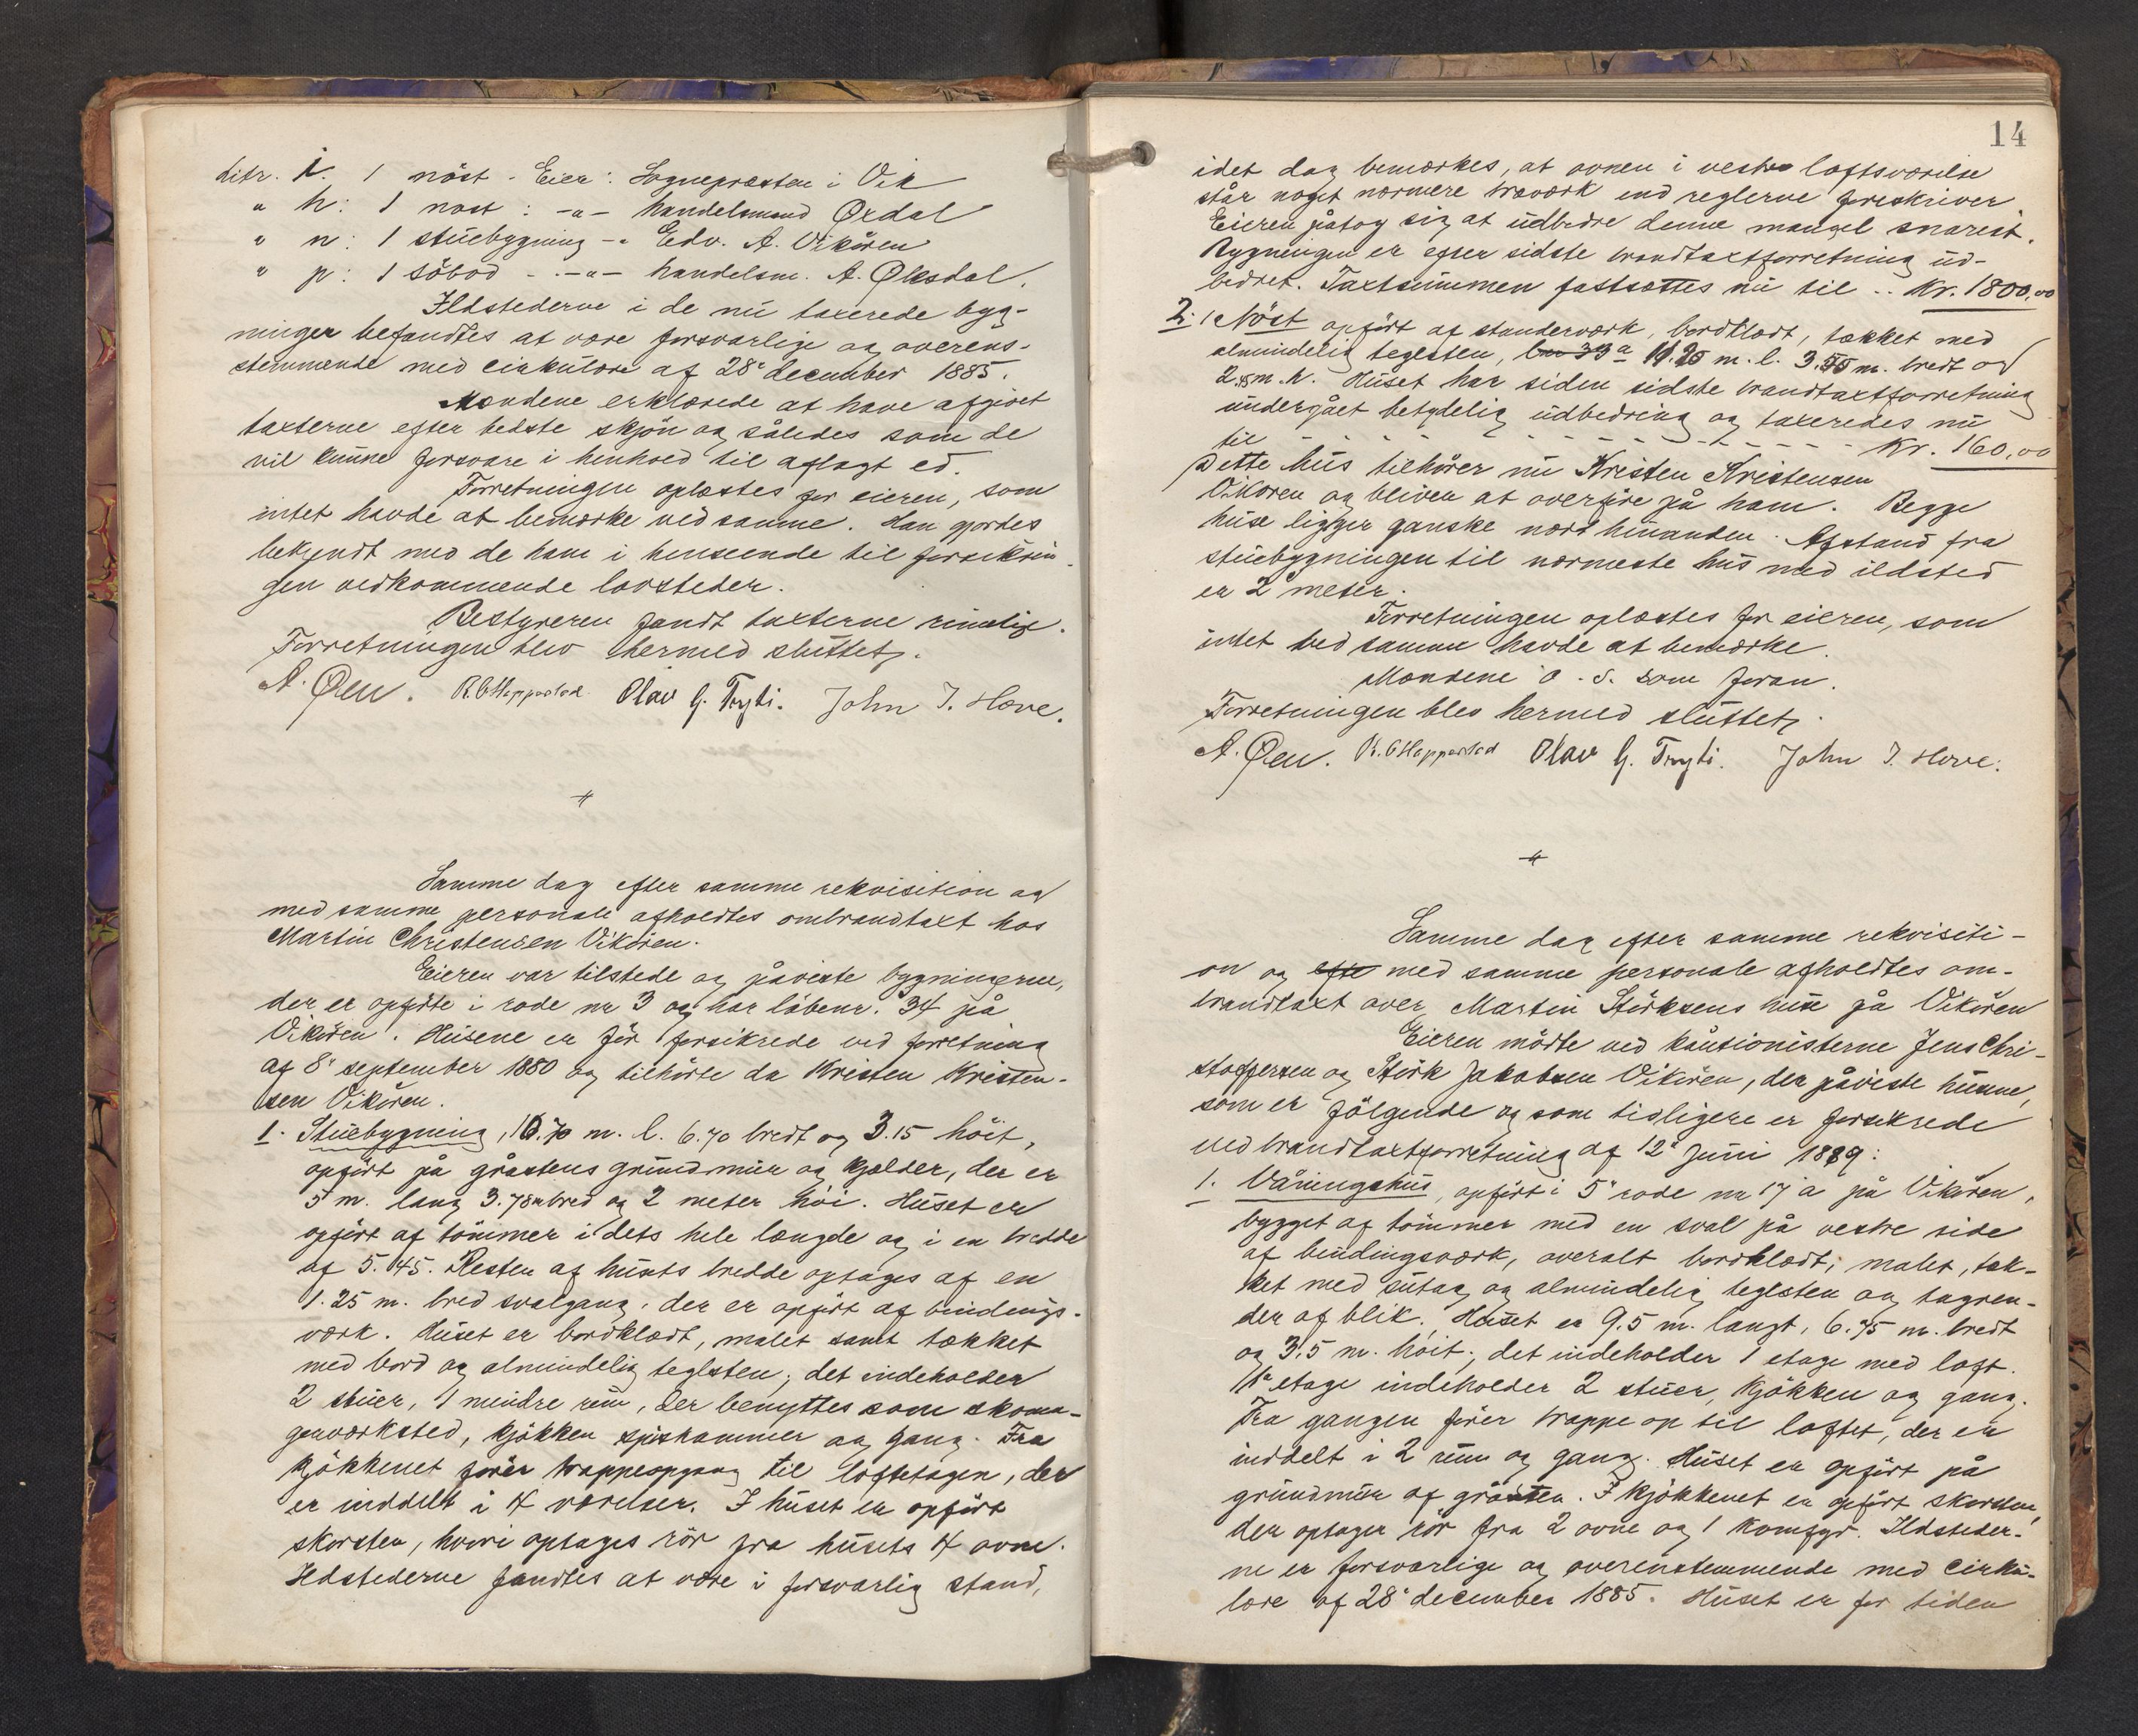 Litr. i. 1 nöst - Eier: Sognepresten i Vik
" h: 1 nöst : -"- handelsmand Öxdal
" n: 1 stuebygning -" Edv. A. Vikören
" p: 1 söbod - . -"- handelsm. A. Öksdal.
Ildstederne i de nu taxerede byg-
ninger befandtes at være forsvarlige og overens-
stemmende med cirkulære af 28de december 1885.
Mændene erklærede at have afgivet
taxterne efter bedste skjön og således som de
vil kunne forsvare i henhold til aflagt ed.
Forretningen oplæstes for eieren, som
intet havde at bemærke ved samme. Han gjordes
bekjendt med de ham i henseende til forsikrin-
gen vedkommende lovsteder.
Bestyreren fandt taxterne rimelige.
Forretningen blev hermed sluttet.
A. Öen. R. O. Hopperstad Olav G. Tryti. John I. Hove.
Samme dag efter samme rekvisition og
med samme personale afholdtes ombrandtaxt hos
Martin Christensen Vikören.
Eieren var tilstede og påviste bygningerne,
der er opförte i rode nr 3 og har löbenr. 34 på
Vikören. Husene er för forsikrede ved forretning
af 8de september 1880 og tilhörte da Kristen Kristen-
sen Vikören.
1. Stuebygning, 10.70 m. l. 6.70 bredt og 3.15 höit,
opfört på gråstens grundmur og kjelder, der er
5 m. lang 3.78 m bred og 2 meter höi. Huset er
opfört af tömmer i dets hele længde og i en bredde
af 5.45. Resten af husets bredde optages af en
1.25 m. bred svalgang, der er opfört af bindings-
værk. Huset er bordklædt, malet samt tækket
med bord og almindelig teglsten; det indeholder
2 stuer, 1 mindre rum, der benyttes som skoma-
gerværksted, kjökken spiskammer og gang. Fra
kjökkenet förer trappeopgang til loftetagen, der
er inddelt i 4 værelser. I huset er opfört
skorsten, hvori optages rör fra husets 4 ovne.
Ildstederne fandtes at være i forsvarlig stand,
14
idet dog bemærkes, at ovnen i vestre loftsværelse
står noget nærmere træværk end reglerne foreskriver.
Eieren påtog sig at udbedre denne mangel snarest.
Bygningen er efter sidste brandtaxtforretning ud-
bedret. Taxtsummen fastsættes nu til .. Kr. 1800,00
2. 1 Nöst opfört af standerværk, bordklædt, tækket med
almindelig teglsten, 33 a 11.25 m. l. 3.55 m. bredt og
2.85 m. h. Huset har siden sidste brandtaxtforretning
undergået betydelig udbedring og taxeredes nu
til - - - - - - - - - - - - - Kr. 160,00
Dette hus tilhörer nu Kristen Kristensen
Vikören og bliver at overföre på ham. Begge
huse ligger ganske nær hinanden. Afstand fra
stuebygningen til nærmeste hus med ildsted
er 2 meter.
Forretningen oplæstes for eieren, som
intet ved samme havde at bemærke.
Mændene o. s. som foran.
Forretningen blev hermed sluttet.
A. Öen. R. O. Hopperstad Olav G. Tryti. John I. Hove.
Samme dag efter samme rekvisiti-
on og efter med samme personale afholdtes om-
brandtaxt over Martin Störksens huse på Vikören
Eieren mödte ved kautionisterne Jens Chri-
stoffersen og Störk Jakobsen Vikören, der påviste husene,
som er fölgende og som tidligere er forsikrede
ved brandtaxtforretning af 12te juni 1889:
1. Våningshus, opfört i 5te rode nr 17 a på Vikören,
bygget af tömmer med en sval på vestre side
af bindingsværk, overalt bordklædt, malet, tæk-
ket med sutag og almindelig teglsten og tagren-
der af blik. Huset er 9.5 m. langt, 6.75 m. bredt
og 3.5 m. höit; det indeholder 1 etage med loft.
1ste etage indeholder 2 stuer, kjökken og gang.
Fra gangen förer trappe op til loftet, der er
inddelt i 2 rum og gang. Huset er opfört på
grundmur af gråsten. I kjökkenet er opfört skorsten,
der optager rör fra 2 ovne og 1 komfyr. Ildsteder-
ne er forsvarlige og overenstemmende med cirku-
lære af 28de december 1885. Huset er for tiden